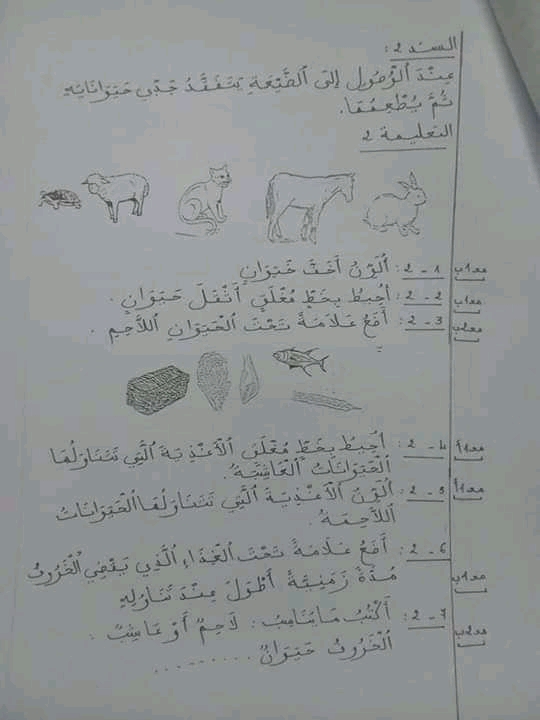 السند 2 :
عِنْدَ الْوُصُولِ إِلَى الضَّيْعَةِ يَتَفَقَّدُ جَدِّي حَيَوَانَاتِهِ
ثُمَّ يُطْعِمُهَا.
التعليمة 2
2 - 1 : أُلَوِّنُ أَخَفَّ حَيَوَانٍ
مع1ب
2 - 2 : أُحِيطُ بِخَطٍّ مُغْلَقٍ أَثْقَلَ حَيَوَانٍ .
مع1ب
2 - 3 : أَضَعُ عَلَامَةً تَحْتَ الْحَيَوَانِ اللَّاحِمِ .
مع2ب
2 - 4 : أُحِيطُ بِخَطٍّ مُغْلَقٍ الْأَغْذِيَةَ الَّتِي تَتَنَاوَلُهَا
مع1أ
الْحَيَوَانَاتُ الْعَاشِبَةُ.
2 - 5 : أُلَوِّنُ الْأَغْذِيَةَ الَّتِي تَتَنَاوَلُهَا الْحَيَوَانَاتُ
مع1أ
اللَّاحِمَةُ .
2 - 6 : أَضَعُ عَلَامَةً تَحْتَ الْغِذَاءِ الَّذِي يَقْضِي الْخَرُوفُ
مُدَّةً زَمَنِيَّةً أَطْوَلَ عِنْدَ تَنَاوُلِهِ
مع1ب
2 - 7 : أَكْتُبُ مَا يُنَاسِبُ : لَاحِمٌ أَوْ عَاشِبٌ .
مع2ب
الْخَرُوفُ حَيَوَانٌ ..........